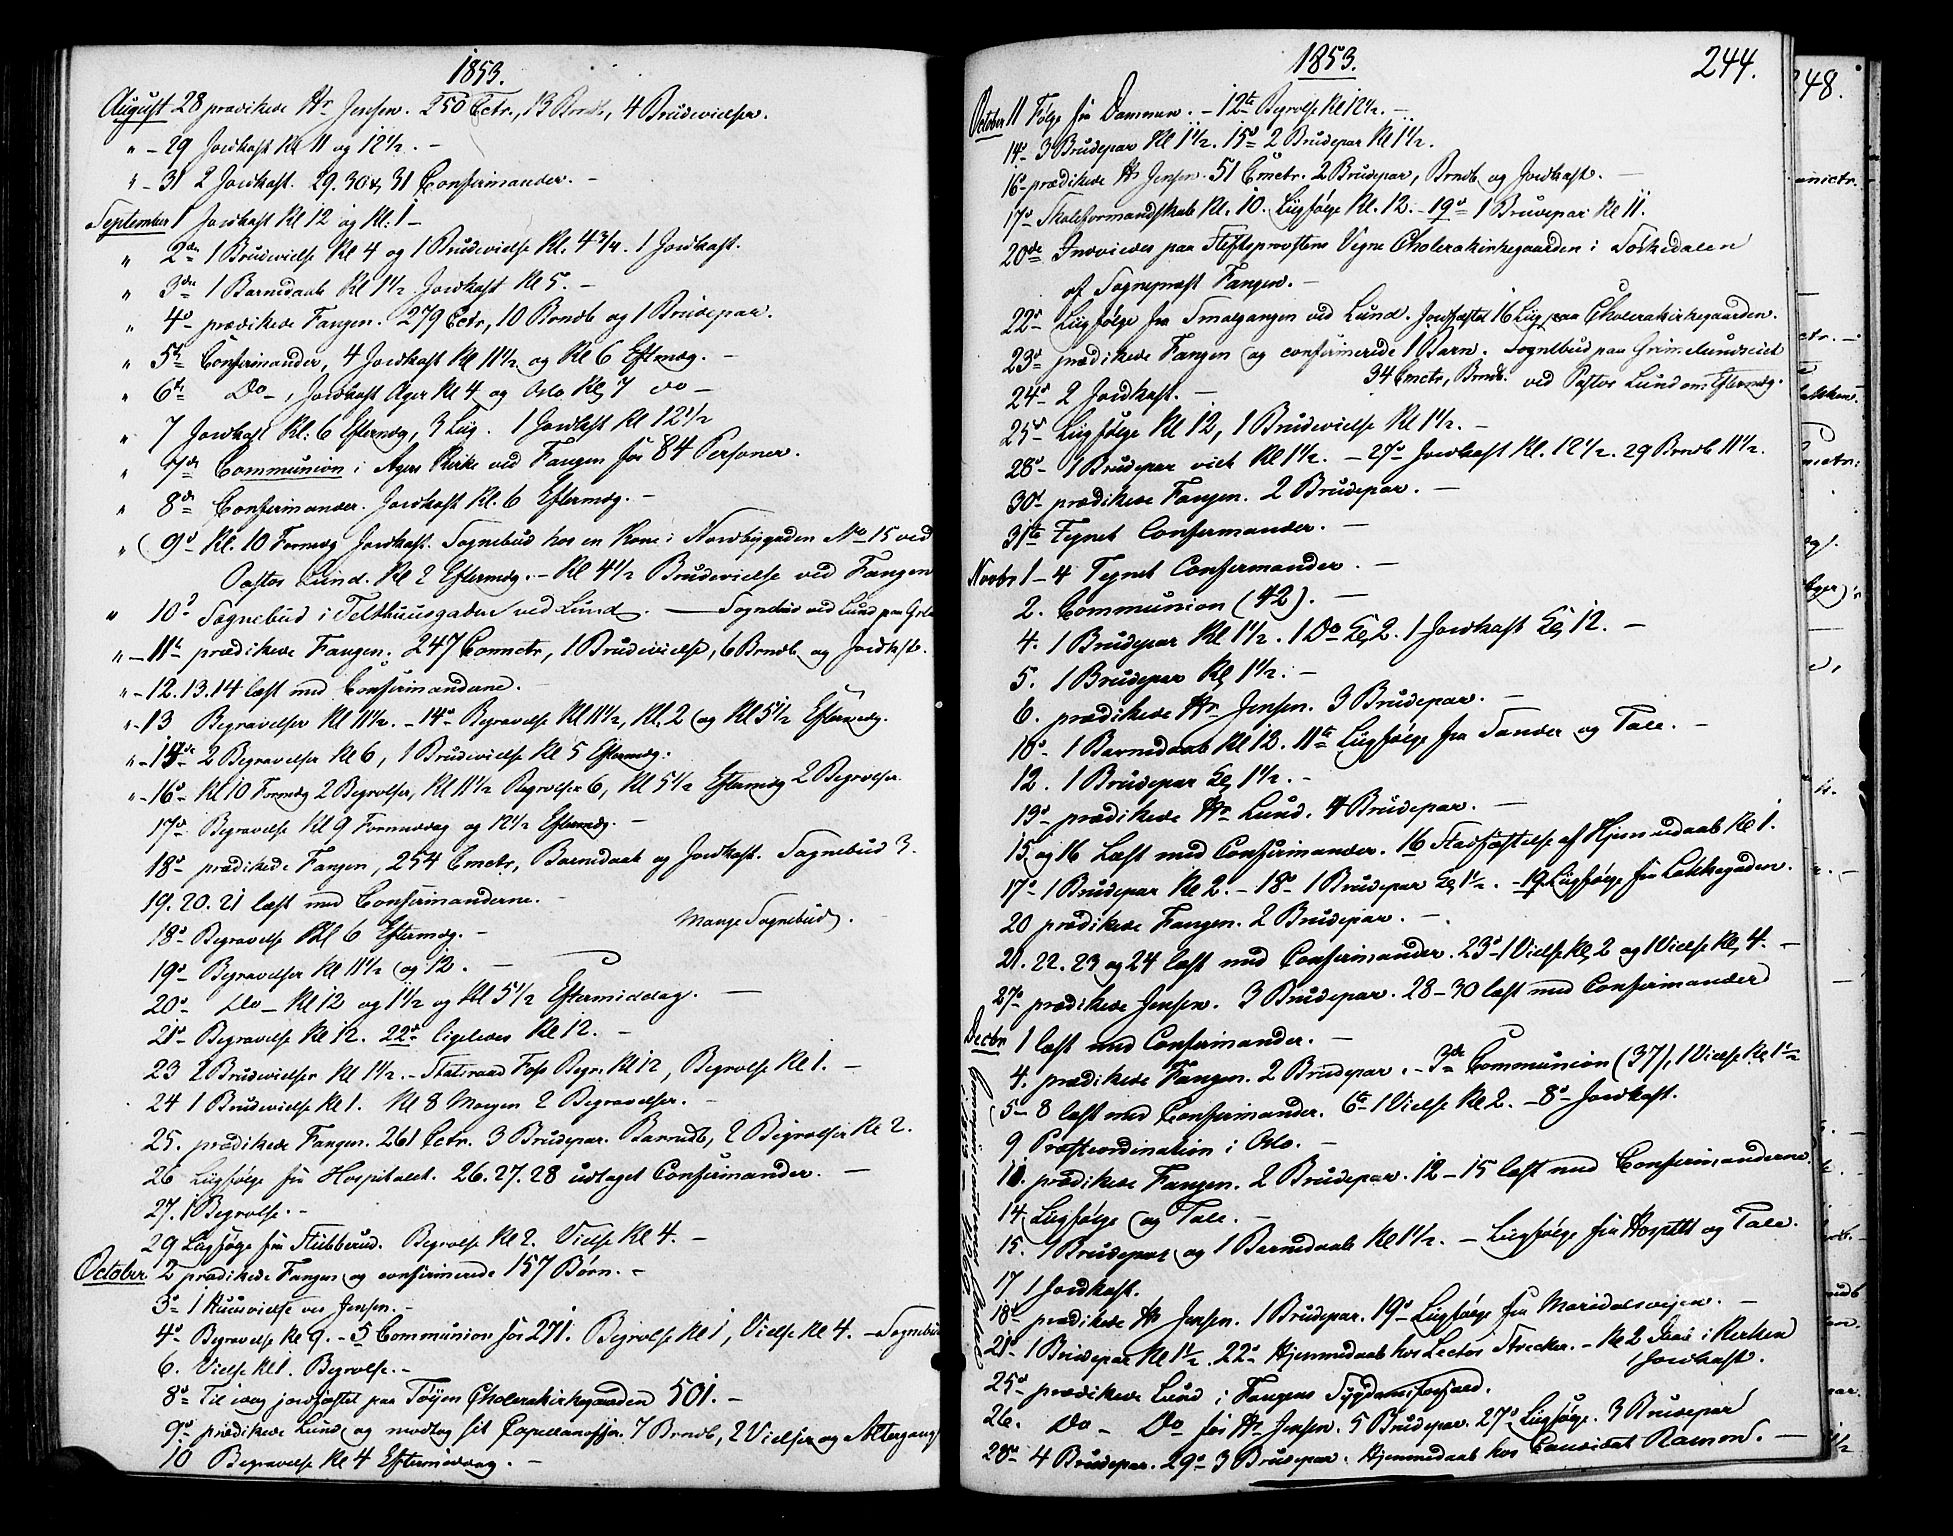 1853.
August 28 prædikede Hr Jensen. 250 Cctr., 13 Brndb, 4 Brudevielser.
" - 29 Jordkast Kl 11 og 12½. -
" - 31 2 Jordkast. 29. 30 & 31 Confirmander. -
September 1 Jordkast Kl 12 og Kl: 1 -
" 2den 1 Brudevielse Kl 4 og 1 Brudevielse Kl. 4 3/4. 1 Jordkast.
" 3die 1 Barnedaab Kl 1½ Jordkast Kl 5. -
" 4de prædikede Fangen. 279 Cctr, 10 Brndb og 1 Brudepar.
" 5te Confirmander, 4 Jordkast Kl 11½ og Kl 6 Eftmdg. -
" 6te Do -, Jordkast Ager Kl 4 og Oslo Kl 7 do -
" 7 Jordkast Kl: 6 Eftermdg, 3 Liig. 1 Jordkast Kl 12½
" 7de Communion i Agers Kirke ved Fangen for 84 Personer.
" 8de Confirmander. Jordkast Kl. 6 Eftermdg. -
" 9de Kl. 10 Formdg Jordkast. Sognebud hos en Kone i Nordbygaden No 15 ved
Pastor Lund. Kl 2 Eftermdg. - Kl 4½ Brudevielse ved Fangen
" 10de Sognebud i Telthuusgaden ved Lund. - Sognebud ved Lund paa
" - 11te prædikede Fangen. 247 Comctr, 1 Brudevielse, 6 Brndb og Jordkast.
" - 12. 13. 14 læst med Confirmanderne. -
" - 13 Begravelser Kl 11½. - 14de Begravelse Kl 11½, Kl. 2 og Kl 5½ Eftermdg.
" - 15de 2 Begravelser Kl 6, 1 Brudevielse Kl 5 Eftermdg.
" - 16de Kl 10 Formdg 2 Begrvlser, Kl 11½ Begrvlser 6, Kl 5½ Eftermdg 2 Begrvlser
17de Begravelse Kl 9 Formiddag og 12½ Eftermdg. -
18de prædikede Fangen, 254 Cmctr, Barnedaab og Jordkast. Sognebud 3.
19. 20. 21 læst med Confirmanderne. -
18de Begravelse Kl 6 Eftermdg. - Mange Sognebud.
19de Begravelser Kl 11½ og 12. -
20de Do - Kl 12 og 1½ og Kl 5½ Eftermiddag. -
21de Begravelse Kl 12. 22de ligeledes Kl 12. -
23 2 Brudevielser Kl 1½. - Statsraad Foss Begr. Kl 12, Begrvlse Kl 1. -
24 1 Brudevielse Kl 1. Kl 8 Morgen 2 Begravelser. -
25. prædikede Fangen. 261 Cctr. 3 Brudepar. Barndb, 2 Begrvlser Kl 2.
26 Liigfølge fra Hospitalet. 26. 27. 28 udtaget Confirmander. -
27. 1 Begrvlse. -
29 Liigfølge fra Stubberud. Begrvlse Kl 2. Vielse Kl 4. -
October 2 prædikede Fangen og confirmerede 157 Børn. -
3de 1 Huusvielse ved Jensen. -
4de Begravelse Kl 9. - 5 Communion for 271. Begrvlse Kl 1, Vielse Kl 4. - Sognebud
6. Vielse Kl 1. Begrvlse. -
8de Til idag jordfæstet paa Tøyen Cholerakirkegaarden 501. -
9de prædikede Lund og modtog sit Capellanoffer. 7 Brndb, 2 Vielser og Altergang
10 Begravelse Kl 4 Eftermiddag. -
1853. 244.
October 11 Følge fra Dammen. - 12te Begrvlse Kl 12½. -
14de 3 Brudepar Kl 1½. 15de 2 Brudepar Kl 1½.
16de prædikede Hr Jensen. 51 Cmctr. 2 Brudepar, Brndb og Jordkast. -
17de Skoleformandskab Kl. 10. Liigfølge Kl. 12. - 19de 1 Brudepar Kl 11.
20de Indviedes paa Stiftsprovstens Vegne Cholerakirkegaarden i Sørkedalen
af Sognepræst Fangen. -
22de Liigfølge fra Smalgangen ved Lund. Jordfæstet 16 Liig paa Cholerakirkegaarden.
23de prædikede Fangen og confirmerede 1 Barn. Sognebud paa Grimelundseiet
34 Cmctr, Brndb. ved Pastor Lund om Eftermdg.
24de 2 Jordkast. -
25de Liigfølge Kl 12, 1 Brudevielse Kl 1½. -
28de 1 Brudepar viet Kl 1½. - 27de Jordkast Kl. 12½. 29 Brndb 11½.
30de prædikede Fangen. 2 Brudepar. -
31te Tegnet Confirmander. -
Novbr 1 - 4 Tegnet Confirmander. -
2. Communion (42). -
4. 1 Brudepar Kl 1½. 1 Do Kl 2. 1 Jordkast Kl 12. -
5. 1 Brudepar Kl 1½. -
6. prædikede Hr Jensen. 3 Brudepar. -
10de 1 Barnedaab Kl 12. 11te Liigfølge fra Sander og Tale. -
12. 1 Brudepar Kl 1½. -
13de prædikede Hr Lund. 4 Brudepar. -
15 og 16 Læst med Confirmander. 16 Stadfæstelse af Hjemmedaab Kl 1.
17de 1 Brudepar Kl 2. - 18de 1 Brudepar Kl 1½. - 19 Liigfølge fra Løkkegaden.
20 prædikede Fangen. 2 Brudepar. -
21. 22. 23 og 24 læst med Confirmander. 23de 1 Vielse Kl 2 og 1 Vielse Kl 4. -
27de prædikede Jensen. 3 Brudepar. 28 - 30 læst med Confirmander
Decbr 1 læst med Confirmander. -
4. prædikede Fangen. 2 Brudepar. - 3die Communion (37), 1 Vielse Kl 1½
5 - 8 læst med Confirmander. 6te 1 Vielse Kl 2. - 8de Jordkast.
9 Præsteordination i Oslo. -
11. prædikede Fangen. 2 Brudepar. 12 - 15 læst med Confirmanderne
14 Liigfølge og Tale. -
15. 1 Brudepar og 1 Barnedaab Kl 1½. - Liigfølge fra Hospitlt og Tale.
17 1 Jordkast.
18de prædikede Hr Jensen. 1 Brudepar. 19de Liigfølge fra Maridalsveien. -
21de 1 Brudepar Kl 1½. 22de Hjemmedaab hos Lector Strecker. - Kl 2 Daab i Kirken
1 Jordkast.
25de prædikede Lund i Fangens Sygdomsforfald.
26. Do - Do for Hr Jensen. 5 Brudepar. 27de Liigfølge. 3 Brudepar
28de 4 Brudepar. 29de 3 Brudepar. Hjemmedaab hos Candidat Ramm. -
248.